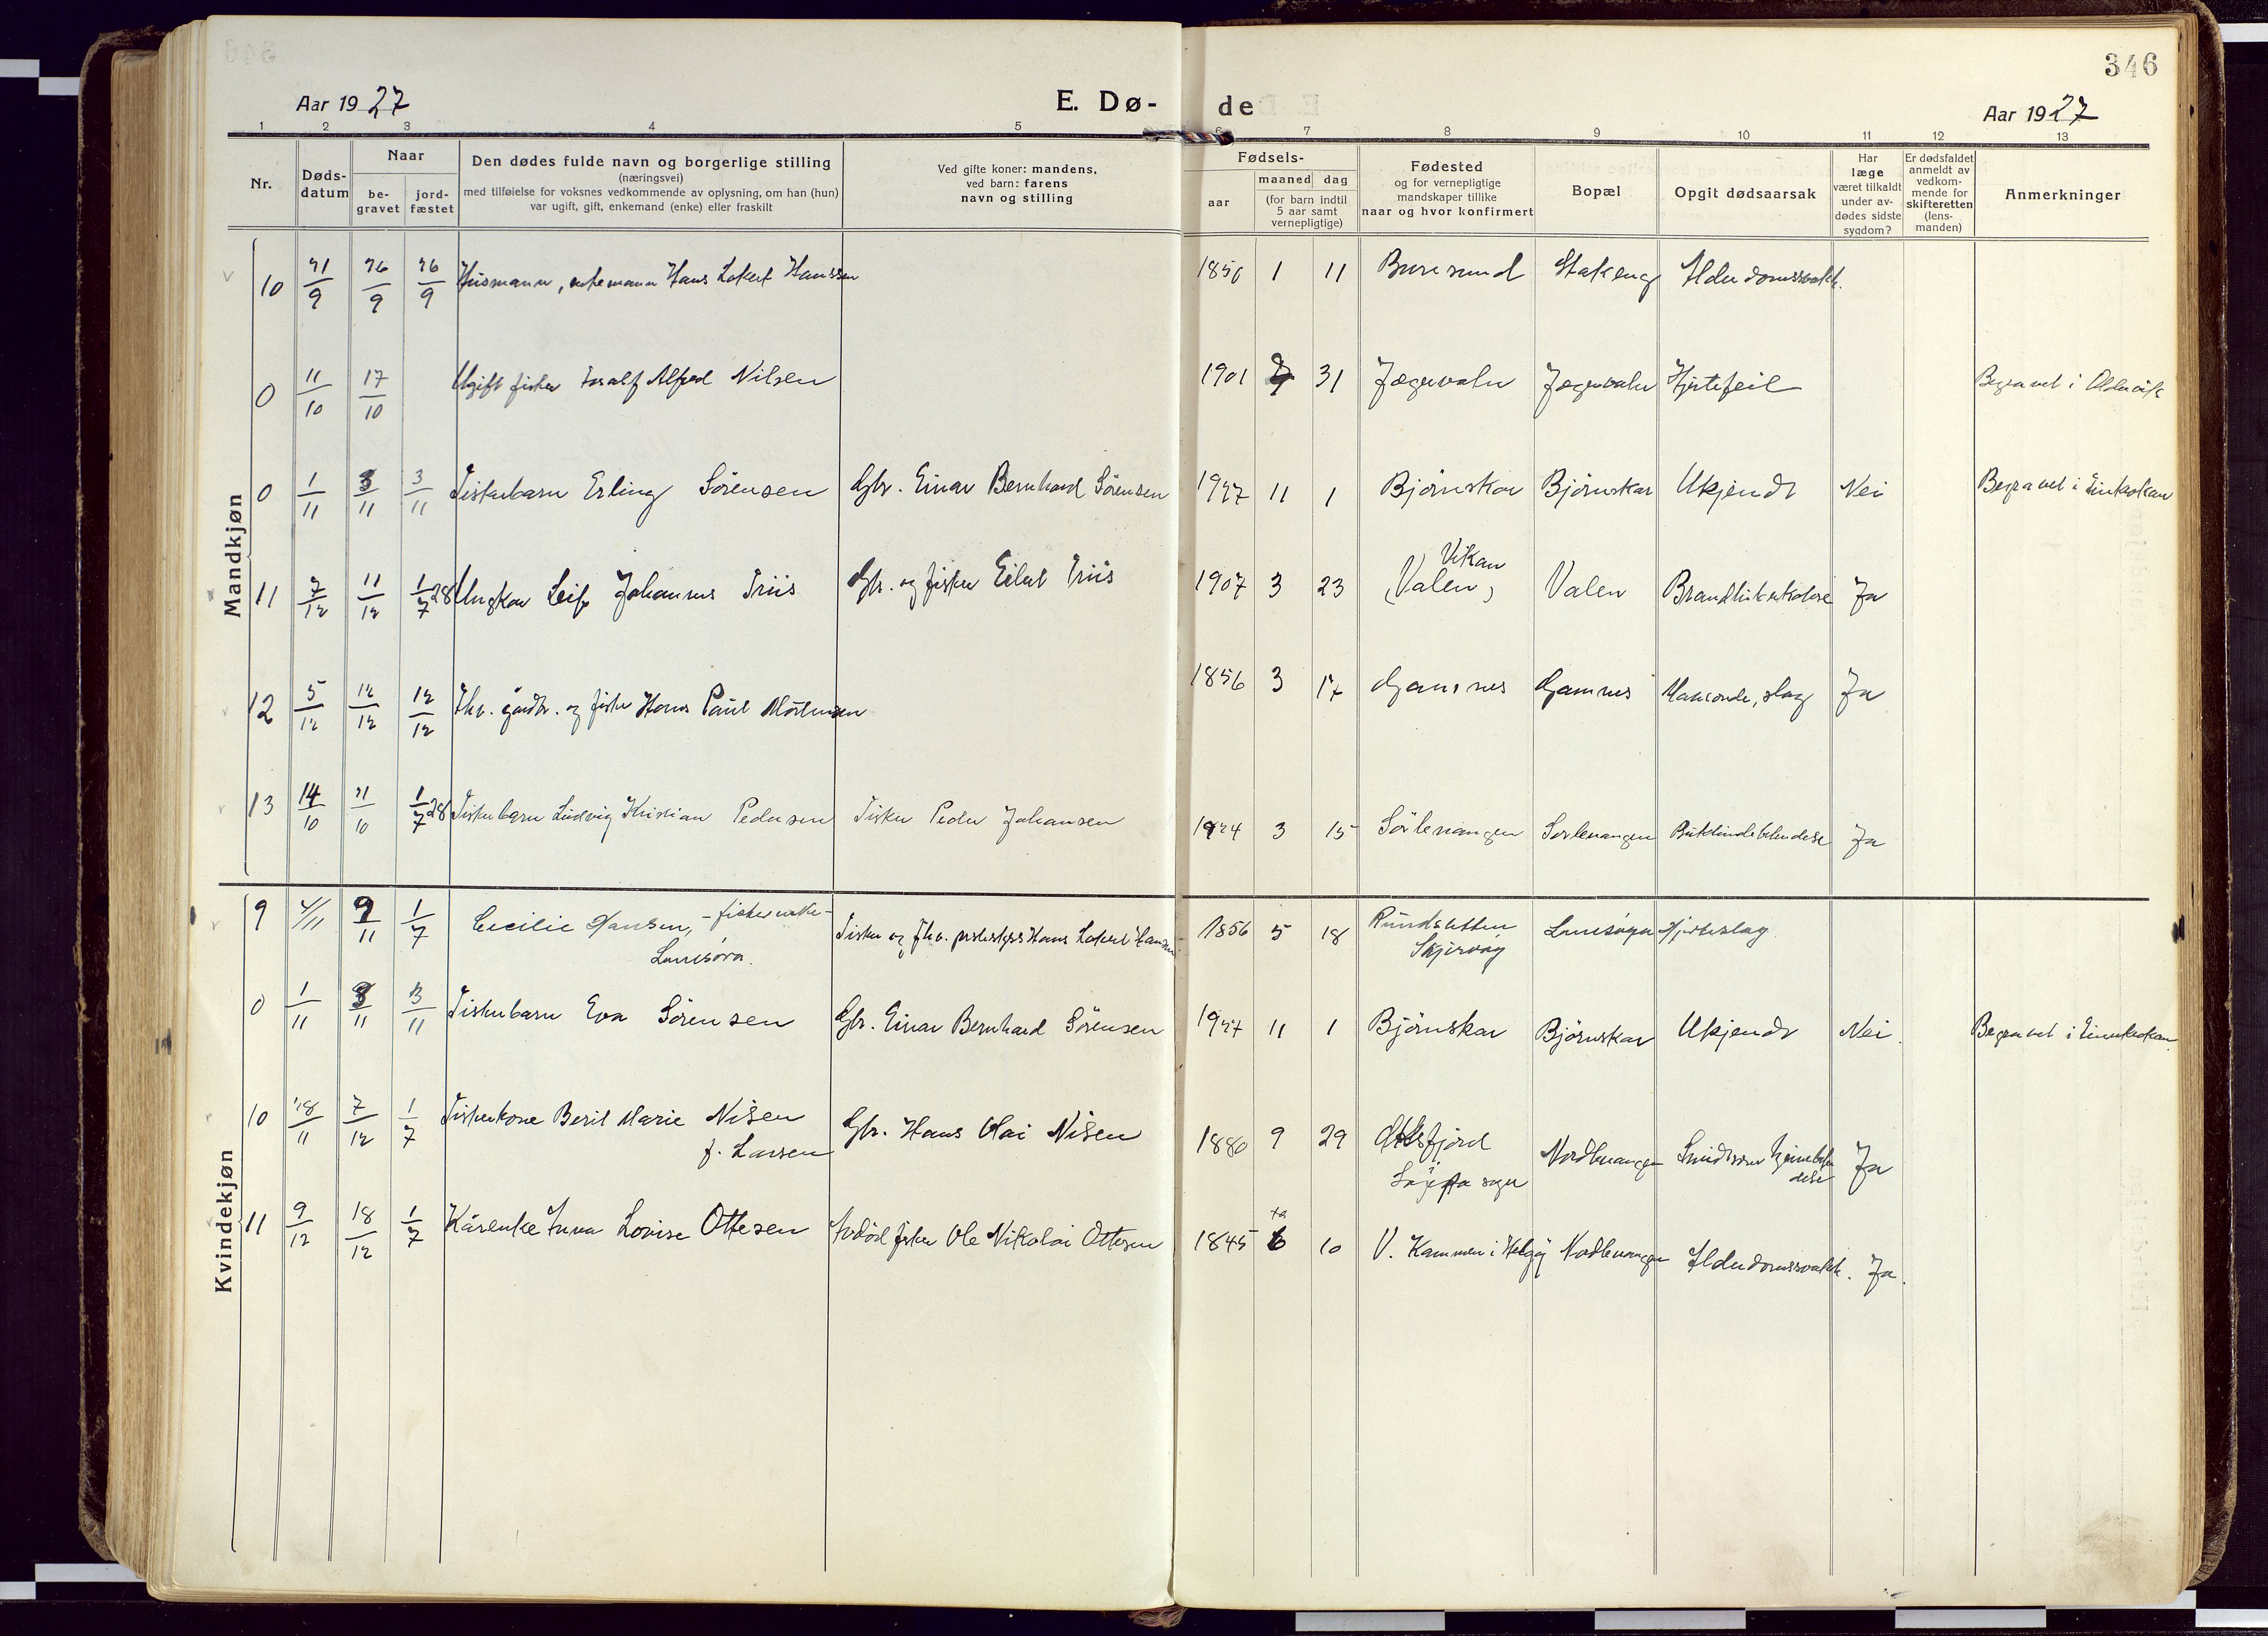 346
Aar 1927 E. Dø- de Aar 1927
1 2 3 4 5 6 7 8 9 10 11 12 13
Nr.
Døds-
datum
Naar
be-
gravet
jord-
fæstet
Den dødes fulde navn og borgerlige stilling
(næringsvei)
med tilføielse for voksnes vedkommende av oplysning, om han (hun)
var ugift, gift, enkemand (enke) eller fraskilt
Ved gifte koner: mandens,
ved barn: farens
navn og stilling
Fødsels-
aar
maaned dag
(for barn indtil
5 aar samt
vernepligtige)
Fødested
og for vernepligtige
mandskaper tillike
naar og hvor konfirmert
Bopæl
Opgit dødsaarsak
Har
læge
været tilkaldt
under av-
dødes sidste
sygdom?
Er dødsfaldet
anmeldt av
vedkom-
mende for
skifteretten
(lens-
manden)
Anmerkninger
Mandkjøn
10 21/9 26/9 26/9 Husmann, enkemann Hans Lokert Hanssen 1850 1 11 Buresund Stakeng Alderdomssvakk.
0 11/10 17/10 Ugift fisker Toralf Alfred Nilsen 1901 31 Jægervatn Jægervatn Hjertefeil Begravet i Oldervik
0 1/11 3/11 3/11 Fiskerbarn Erling Sørensen Gbr. Einar Bernhard Sørensen 1927 11 1 Bjørnskar Bjørnskar Ukjendt Nei Begravet i
11 7/12 11/12 1/7 28 Ungkar Leif Johannes Friis Gbr. og fisker Eilert Friis 1907 3 23 (Valen) Vikan Valen Ja
12 5/12 12/12 12/12 Fhv. gårdbr. og fisker Hans Paul Mortensen 1856 3 17 Gamnes Gamnes slag Ja
13 14/10 21/10 1/7 28 Fiskerbarn Ludvig Kristian Pedersen Fisker Peder Johansen 1924 3 15 Sørlenangen Sørlenangen Bukhindebetendelse Ja
Kvindekjøn
9 4/11 9/11 1/7 Cecilie Hansen, - fiskerenke - Fisker og fhv. Hans Lokert Hansen 1856 5 18
Lanesøra. Skjervøy Hjerteslag
0 1/11 3/11 3/11 Fiskerbarn Eva Sørensen Gbr. Einar Bernhard Sørensen 1927 11 1 Bjørnskar Bjørnskar Ukjendt Nei. Begravet i
10 28/11 7/12 1/7 Fiskerkone Berit Marie Nilsen Gbr. Hans Olai Nilsen 1880 9 29 Nordlenangen Ja
f. Larsen sogn
11 9/12 18/12 1/7 Kårenke Anna Lovise Ottesen Avdød fisker Ole Nikolai Ottesen 1845 6 10 V. Kammen i Helgøy Nordlenangen Alderdomssvakk. Ja.